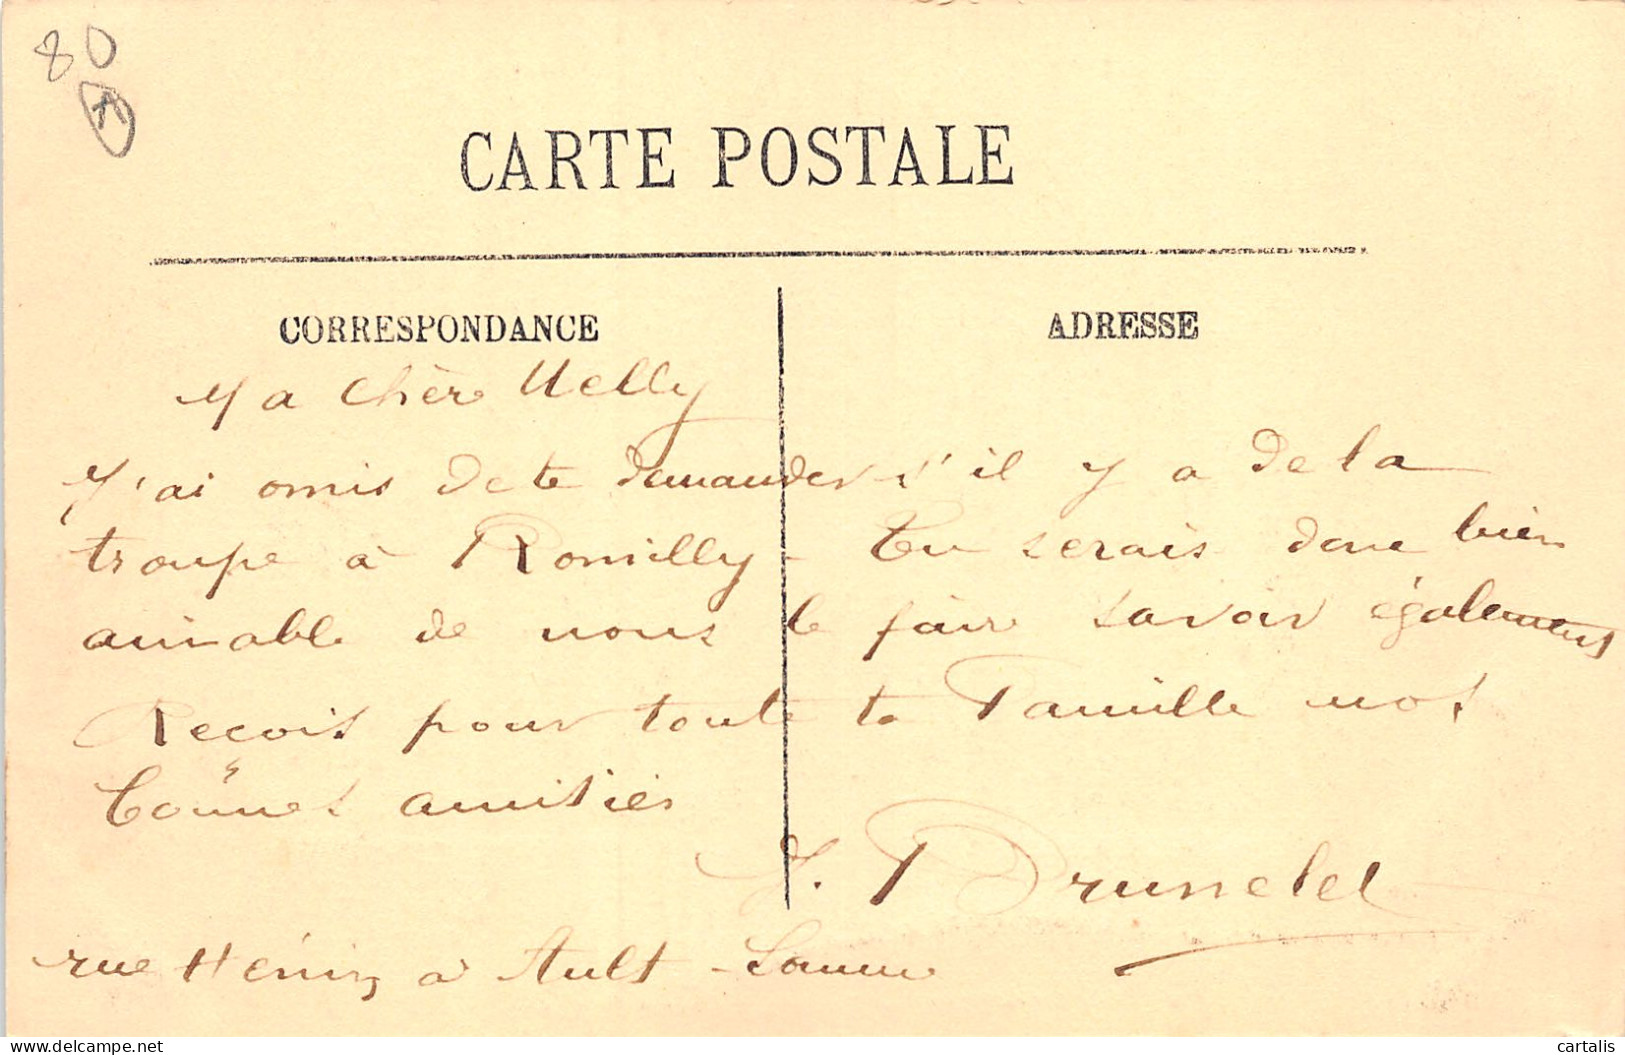 80
CARTE POSTALE
CORRESPONDANCE
ADRESSE
Ma chère Nelly
J'ai omis de te demander s'il y a de la
troupe à Romilly - Tu serais donc bien
aimable de nous le faire savoir également
Reçois pour toute ta Famille nos
bonnes amitiés
J. Brunelet
rue Hénin à Ault - Somme
delcampe.net
cartalis